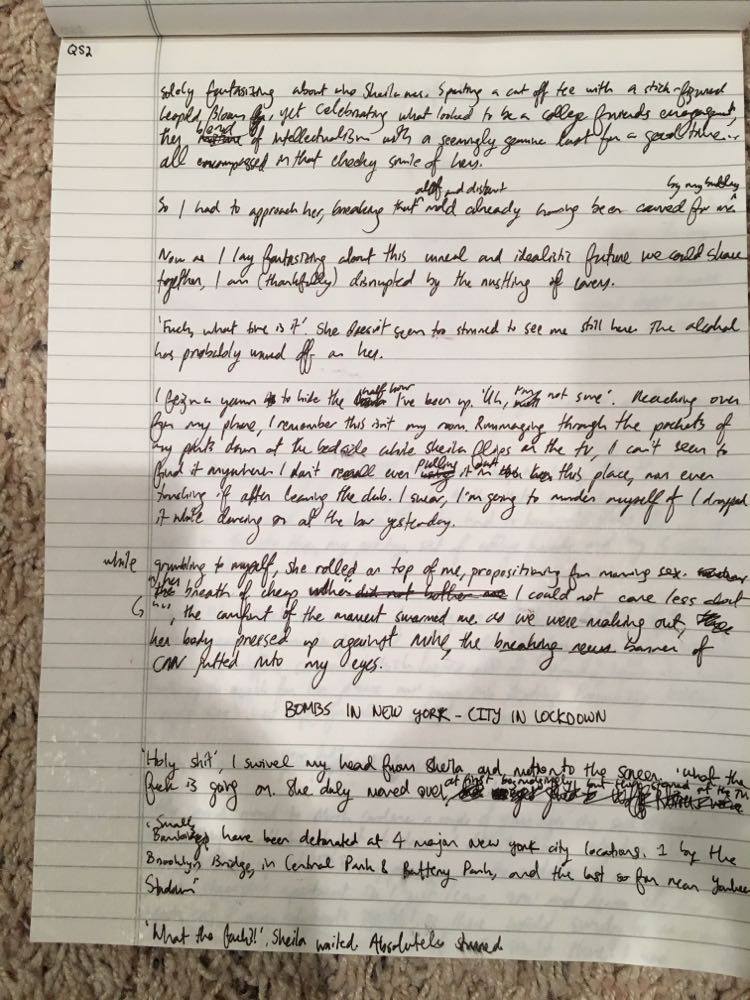 QS2
solely fantasizing about who Sheila was. Sporting a cut off tee with a stick-figured
Leopold Bloom on, yet celebrating what looked to be a college friends engagement,
they blend of intellectualism with a seemingly genuine lust for a good time...
all encompassed in that cheeky smile of hers.
aloof and distant by my buddies
So I had to approach her, breaking that mold already having been carved for me.
Now as I lay fantasizing about this unreal and idealistic future we could share
together, I am (thankfully) disrupted by the rustling of covers.
'Fuck, what time is it'. She doesn't seem too stunned to see me still here. The alcohol
has probably weared off on her.
half hour I'm
I feign a yawn to hide the I've been up. 'Uh, not sure'. Reaching over
for my phone, I remember this isn't my room. Rummaging through the pockets of
my pants down at the bedside while Sheila flips on the tv, I can't seem to
pulling out
find it anywhere. I don't recall ever it in this place, nor even
touching it after leaving the club. I swear, I'm going to murder myself if I dropped
it while dancing or at the bar yesterday.
while grumbling to myself, she rolled on top of me, propositioning for morning sex.
her breath of cheap I could not care less about
, the comfort of the moment swarmed me. as we were making out,
her body pressed up against mine, the breaking news banner of
CNN jutted into my eyes.
BOMBS IN NEW YORK - CITY IN LOCKDOWN
'Holy shit', I swivel my head from Sheila and motion to the screen, 'what the
at first begrudgingly but then at the TV
fuck is going on. She duly moved over,
Small
'Bombings have been detonated at 4 major New York city locations. 1 by the
Brooklyn Bridge, in Central Park & Battery Park, and the last so far near Yankee
Stadium'
'What the fuck?!', Sheila waited. Absolutely stunned